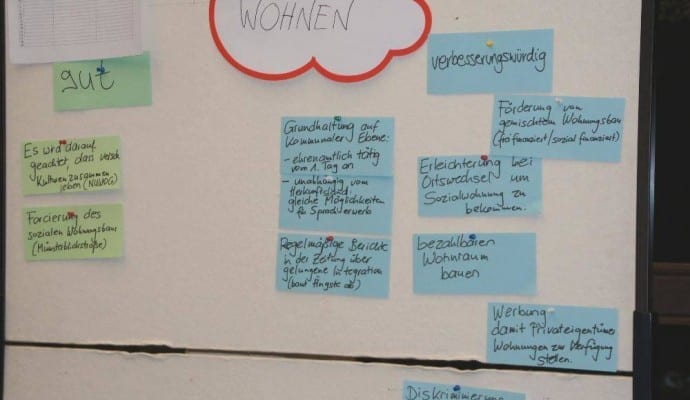 WOHNEN
gut
Es wird darauf
geachtet, dass versch.
Kulturen zusammen
leben
Forcierung des
sozialen Wohnungsbaus
verbesserungswürdig
Grundhaltung auf
kommunaler Ebene:
- ehrenamtlich tätig
vom 1. Tag an
- unabhängig vom
Herkunftsland:
gleiche Möglichkeiten
für Spracherwerb
Regelmäßige Berichte
in der Zeitung über
gelungene Integration
(baut Ängste ab)
Förderung von
gemischtem Wohnungsbau
(frei finanziert/sozial finanziert)
Erleichterung bei
Ortswechsel um
Sozialwohnung zu
bekommen.
bezahlbaren
Wohnraum
bauen
Werbung
damit Privateigentümer
Wohnungen zur Verfügung
stellen.
Diskriminierung